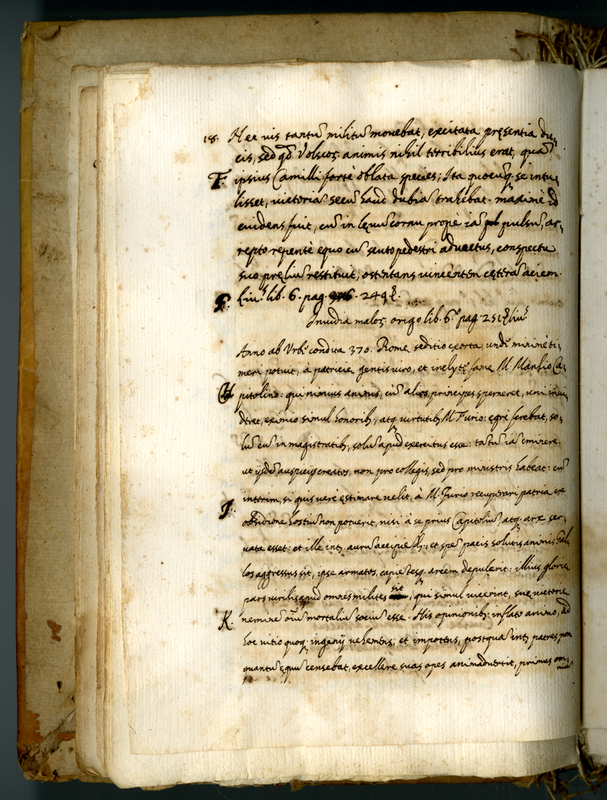 18. Hec vis tantũ militũ mouebat, excitata pręsentia du-
cis, sed qđ Volscoꝝ animis nihil terribilius erat, quã
F. ipsius Camilli fortè oblata species; Ita quocuq̃ se intu-
lisset, victoria secũ haud dubia trahebat. maximè id
euidens fuit, cũ in lęuũ cornu propè iã pulsũ, ar-
repto repentè equo cũ scuto pedestri aduectus, conspectu
suo pręliũ restituit, ostentans vincentem cęterã aciem.
G. Liu. lib. 6. pag. 249.
Inuidia maloꝝ origo lib. 6.º pag 251 Liu.
Anno ab Vrbe condita 370. Rome seditio exorta, undè minimè ti-
meri potuit, à patricię gentis viro, et inclytę famę M. Manlio Ca-
H pitolino: qui nimius animi, cũ alios principes sperneret, uni inui-
deret, eximio simul honorib, atq virtutib M. Furio: egrè ferebat, so-
lũ eũ in magistratib, solũ apud exercitus esse: tantũ iã eminere,
ut ijsdẽ auspicijs creatos, non pro collegis, sed pro ministris habeat: cũ
interim, si quis verè estimare velit, à M. Furio recuperari patria ex
I. obsidione hostiũ non potuerit, nisi à se prius Capitoliũ atq arx ser-
uata esset: et ille inter aurũ accipiẽdũ, et spẽ pacis solutis animis, Gal-
los aggressus sit, ipse armatos, capiẽtesq arcem depulerit: illius glorię
pars virilis apud omnes milites sit, qui simul vicerint, suę victorię
K. neminẽ oĩũ mortaliũ sociũ esse. His opinionib inflato animo, ad
hoc vitio quoq ingenij vehemens, et impotens, postquã inter patres, non
quantũ ęquũ censebat, excellere suas opes animaduertit, primus om-